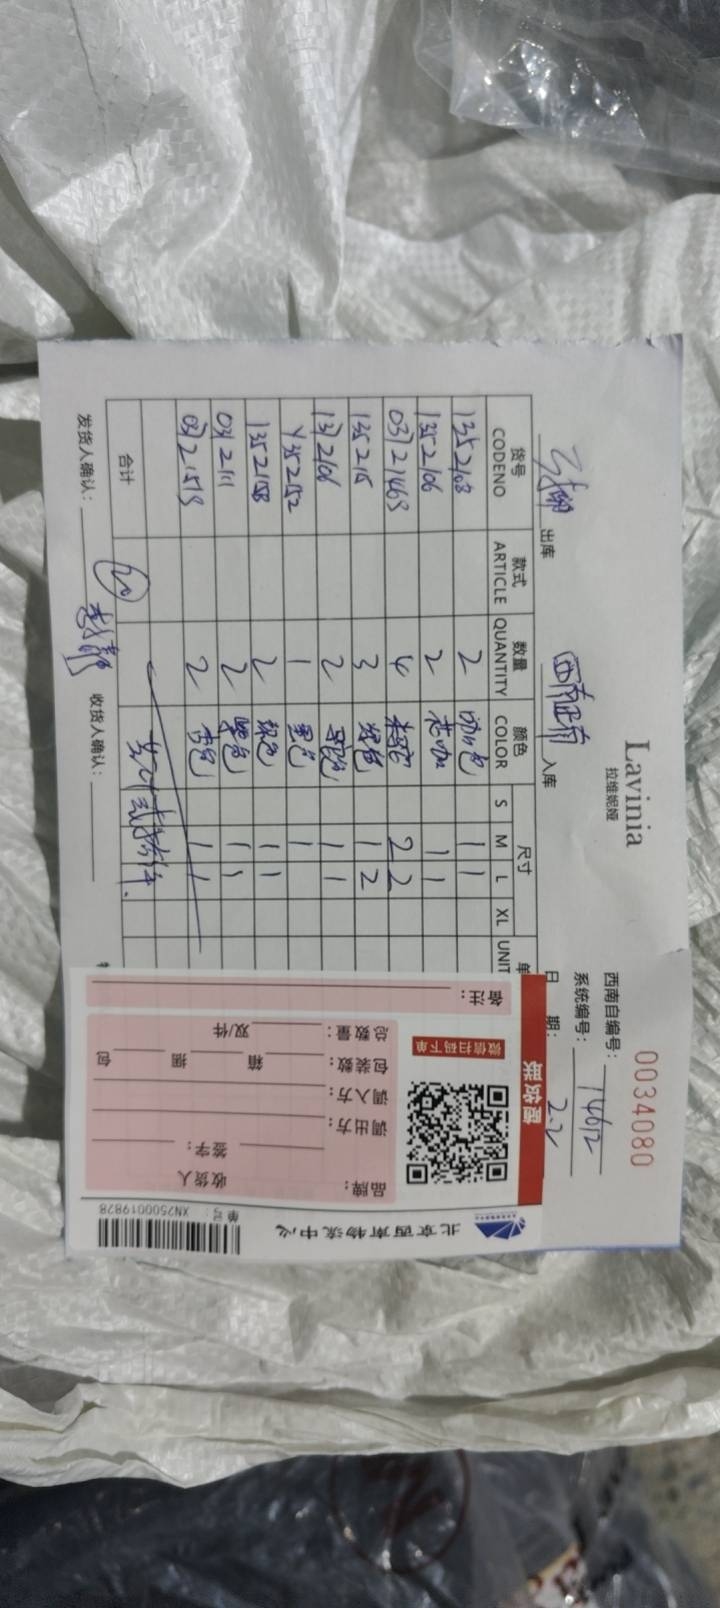 Lavinia
拉维妮娅
0034080
西南自编号: 14612
系统编号: 2.2
出库 入库 日 期:
货号 款式 数量 颜色 尺寸 单
CODENO ARTICLE QUANTITY COLOR S M L XL UNIT
1352108 2 咖色 1 1
1352106 2 1 1
03121463 4 2 2
135215 3 绿色 1 2
1312106 2 1 1
Y352152 1 黑色 1
1352158 2 1 1
0312111 2 紫色 1 1
03121513 2 杏色 1 1
合计 20
发货人确认: 收货人确认:
北京西南物流中心
单号: XN2500019828
品牌: 收货人
签字:
调出方:
调入方:
包装数: 箱 捆 包
总数量: 双/件
备注:
微信扫码下单